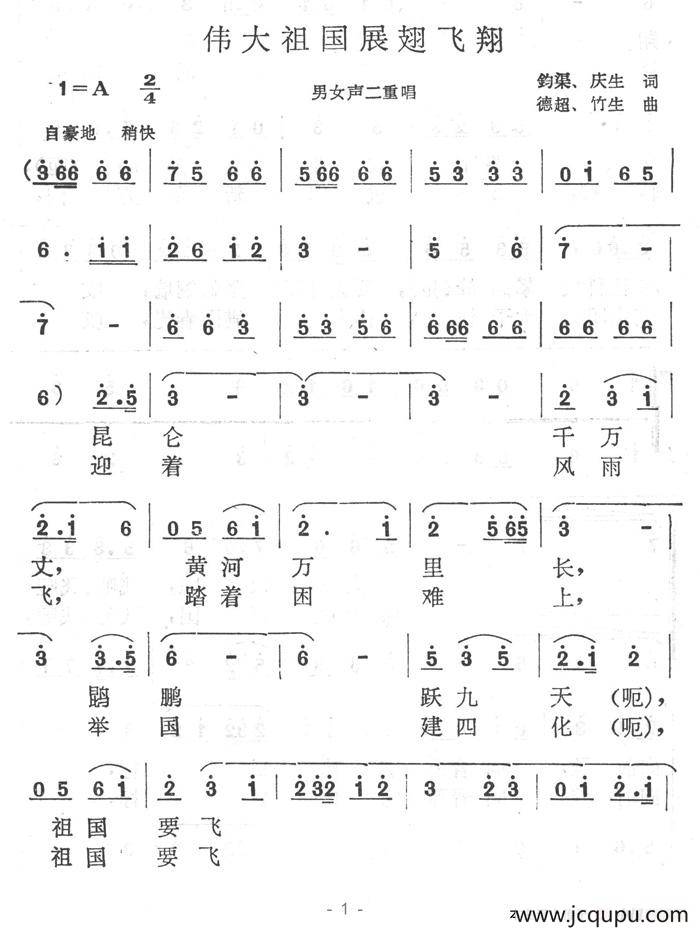 伟大祖国展翅飞翔
1=A 2/4
男女声二重唱
鈞渠、庆生 词
德超、竹生 曲
自豪地 稍快
(3 6 6 6 6 | 7 5 6 6 | 5 6 6 6 6 | 5 3 3 3 | 0 1 6 5 |
6 . 1 1 | 2 6 1 2 | 3 - | 5 6 | 7 - |
7 - | 6 6 6 3 | 5 3 5 6 | 6 6 6 6 6 | 6 6 6 6 |
6 ) 2 . 5 | 3 - | 3 - | 3 - | 2 3 1 |
昆仑 千万
迎着 风雨
2 . 1 6 | 0 5 6 1 | 2 . 1 | 2 5 6 5 | 3 - |
丈, 黄河万 里长,
飞, 踏着困 难上,
3 3 . 5 | 6 - | 6 - | 5 3 5 | 2 . 1 2 |
鹍鹏 跃九天(呃),
举国 建四化(呃),
0 5 6 1 | 2 3 1 | 2 3 2 1 2 | 3 2 | 0 1 2 . 1 |
祖国 要飞
祖国 要飞
- 1 -
www.jcqupu.com